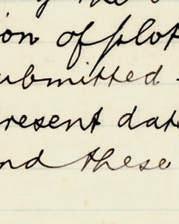 ion of plot
ubmitted
resent dat
nd these